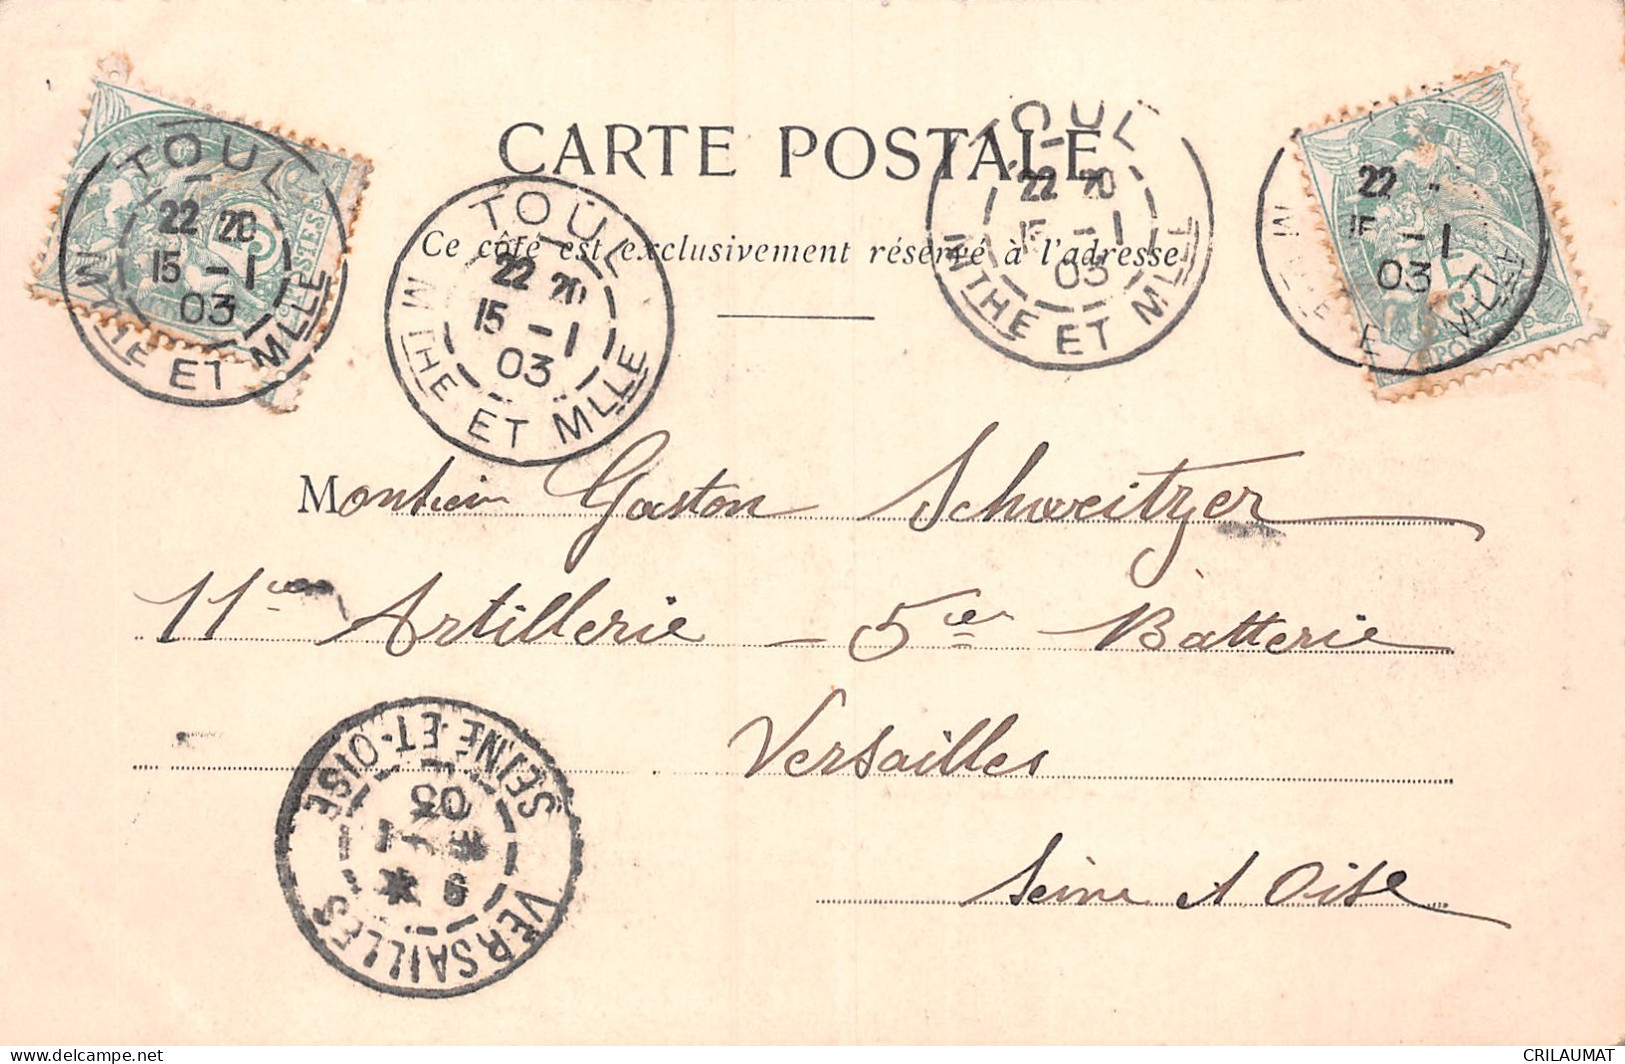 CARTE POSTALE
Ce côté est exclusivement réservé à l'adresse
TOUL
22 20
15 -1
03
MTHE ET MLLE
TOUL
22 20
15 -1
03
MTHE ET MLLE
TOUL
22 20
15 -1
03
MTHE ET MLLE
22
15 -1
03
ET MLLE
5
5
Monsieur Gaston Schweitzer
11e Artillerie - 5ie Batterie
Versailles
Seine et Oise
VERSAILLES
6 *
-1
03
SEINE-ET-OISE
CRILAUMAT